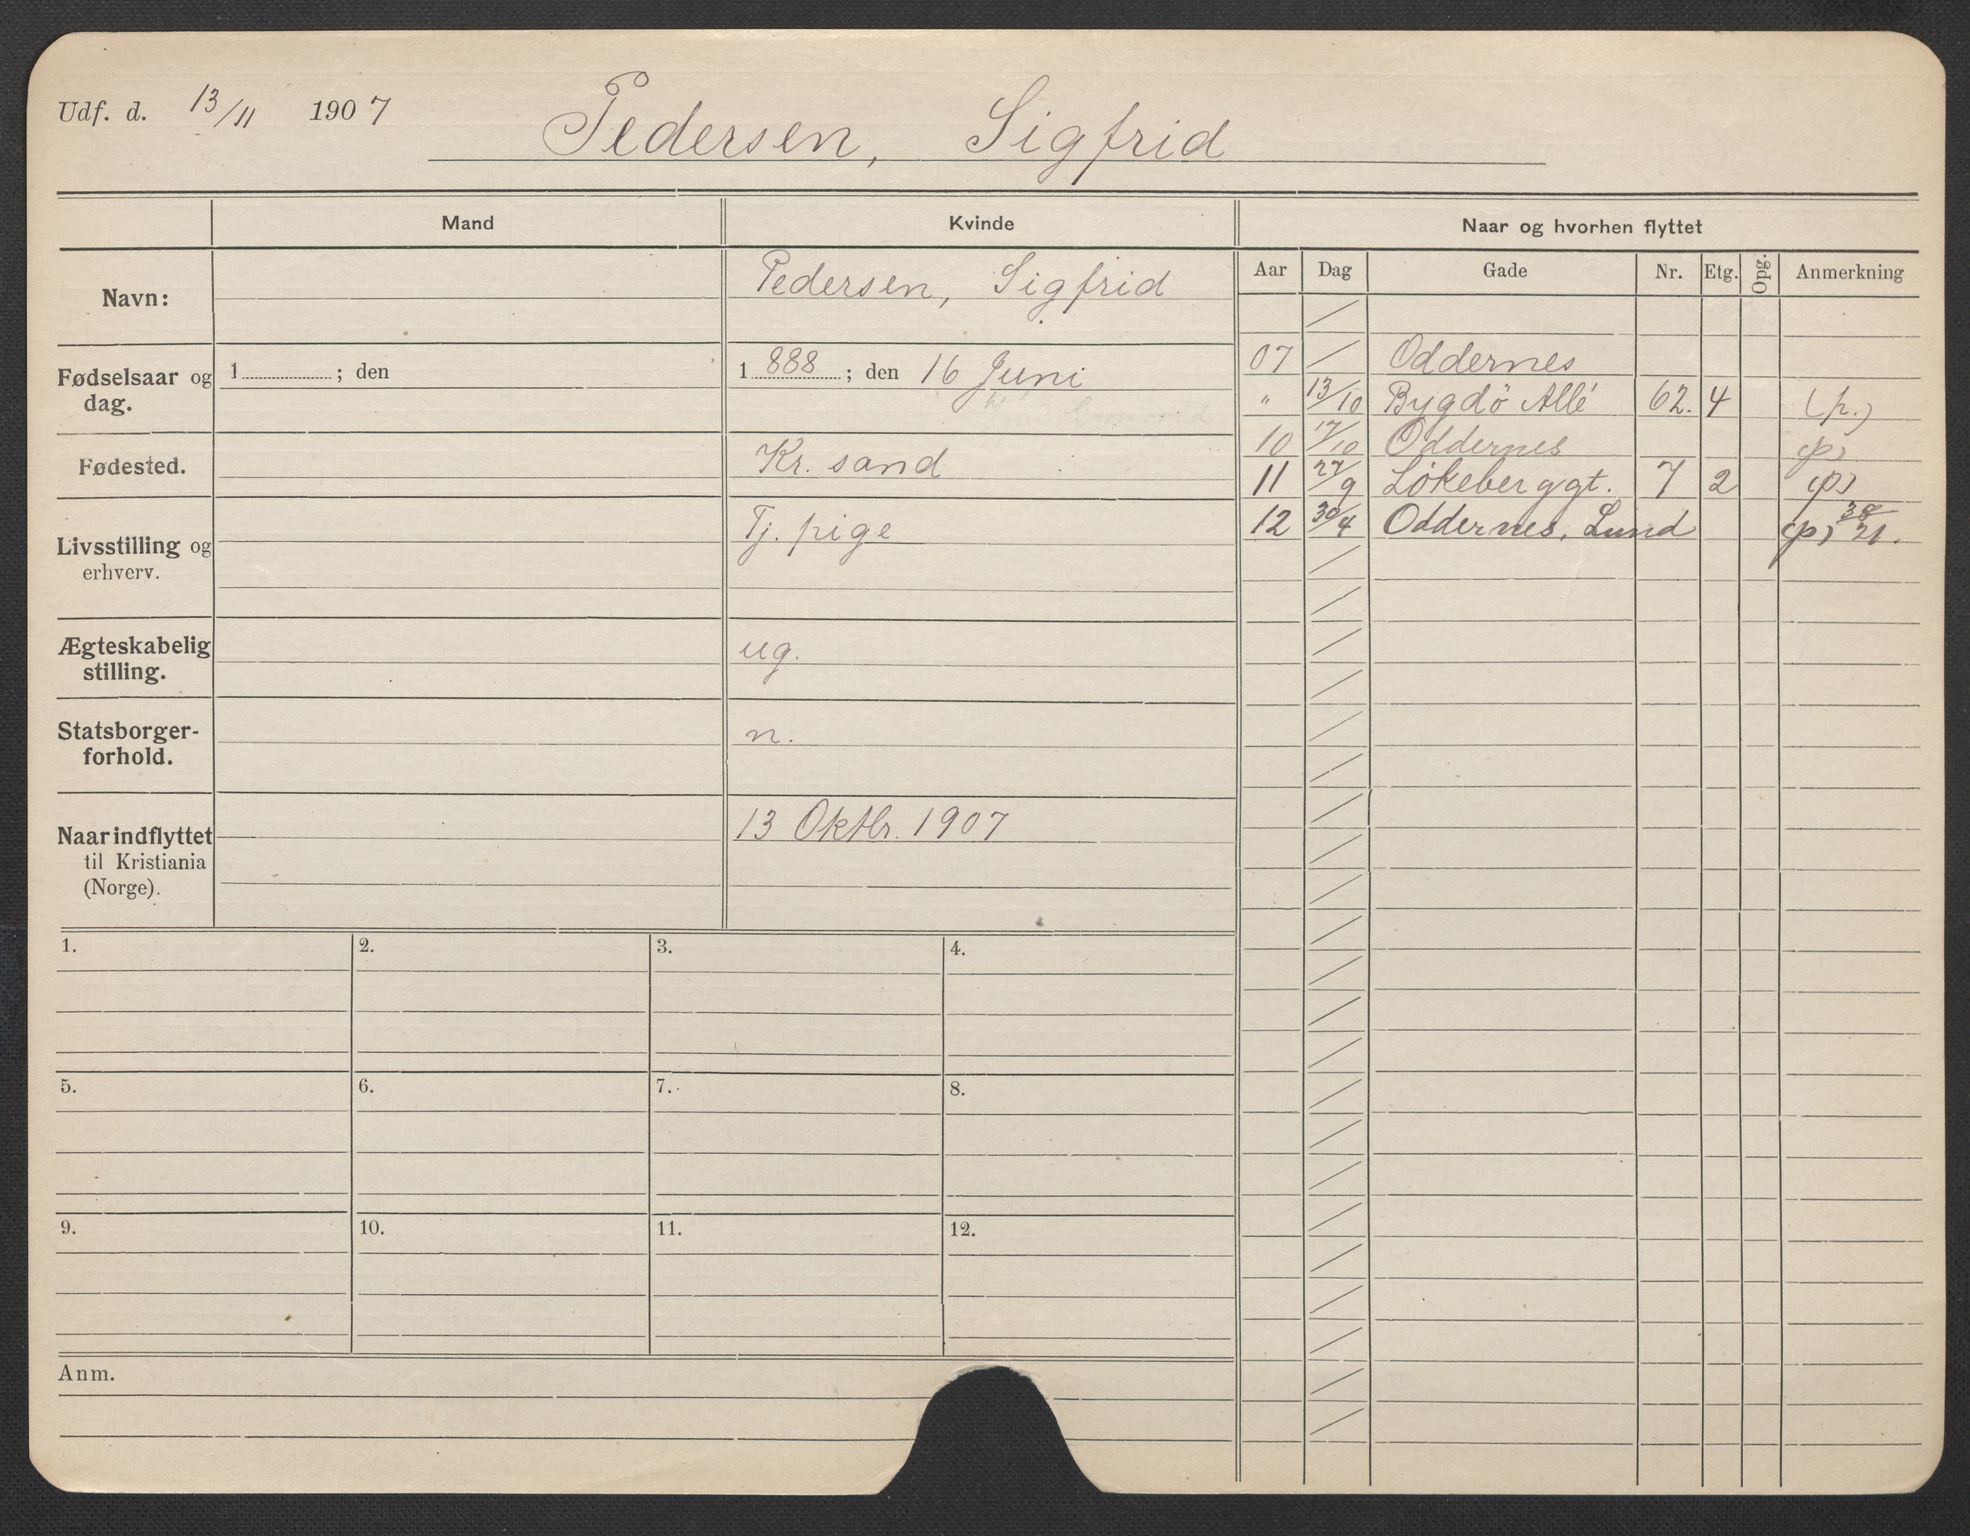 Udf. d. 13/11 1907 Pedersen, Sigfrid
Mand Kvinde Naar og hvorhen flyttet
Aar Dag Gade Nr. Etg. Opg. Anmerkning
Navn: Pedersen, Sigfrid
Fødselsaar og dag. 1 ; den 1888 ; den 16 Juni
Fødested. Kr. sand
Livsstilling og erhverv. Tj. pige
Ægteskabelig stilling. ug.
Statsborgerforhold. n.
Naar indflyttet til Kristiania (Norge). 13 Oktbr. 1907
07 Oddernes
" 13/10 Bygdö Allé 62. 4 (p.)
10 17/10 Oddernes (p)
11 27/9 Løkeberggt. 7 2 (p)
12 30/4 Oddernes, Lund (p) 38/21.
1. 2. 3. 4.
5. 6. 7. 8.
9. 10. 11. 12.
Anm.